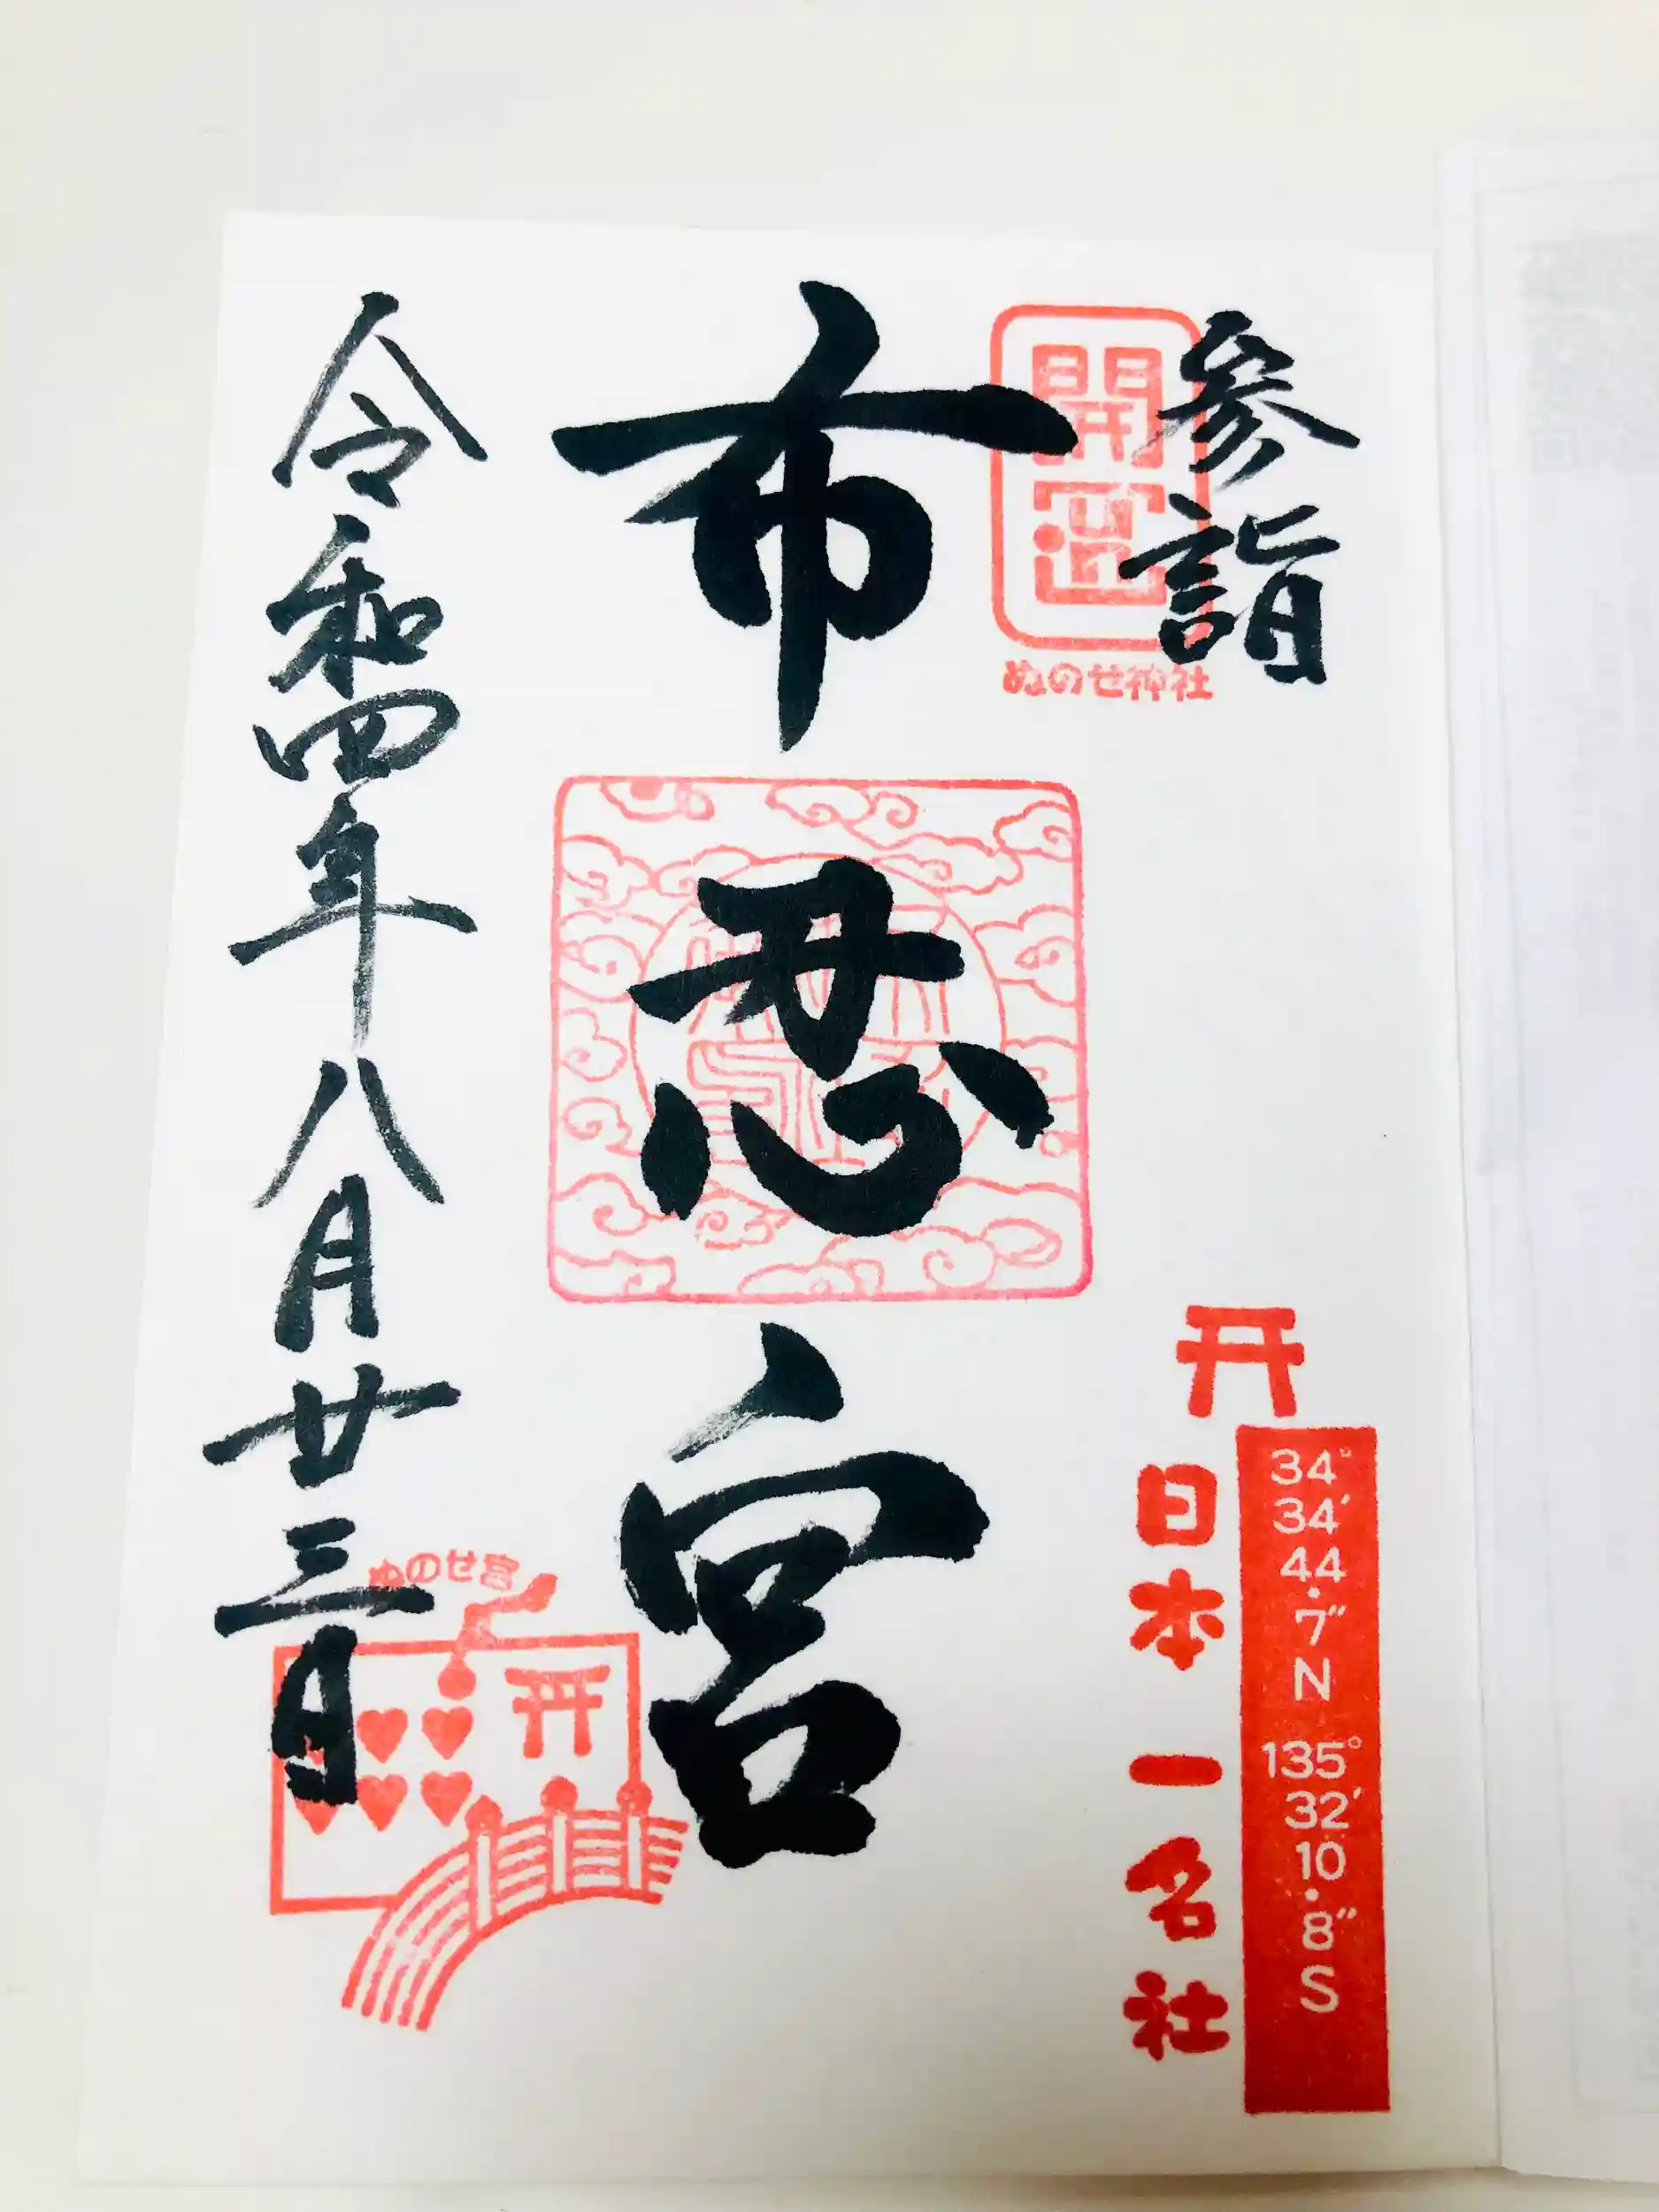 参詣
開運
ぬのせ神社
日本一名社
34°34′44.7″N 135°32′10.8″S
布忍宮
令和四年八月廿三日
ぬのせ宮